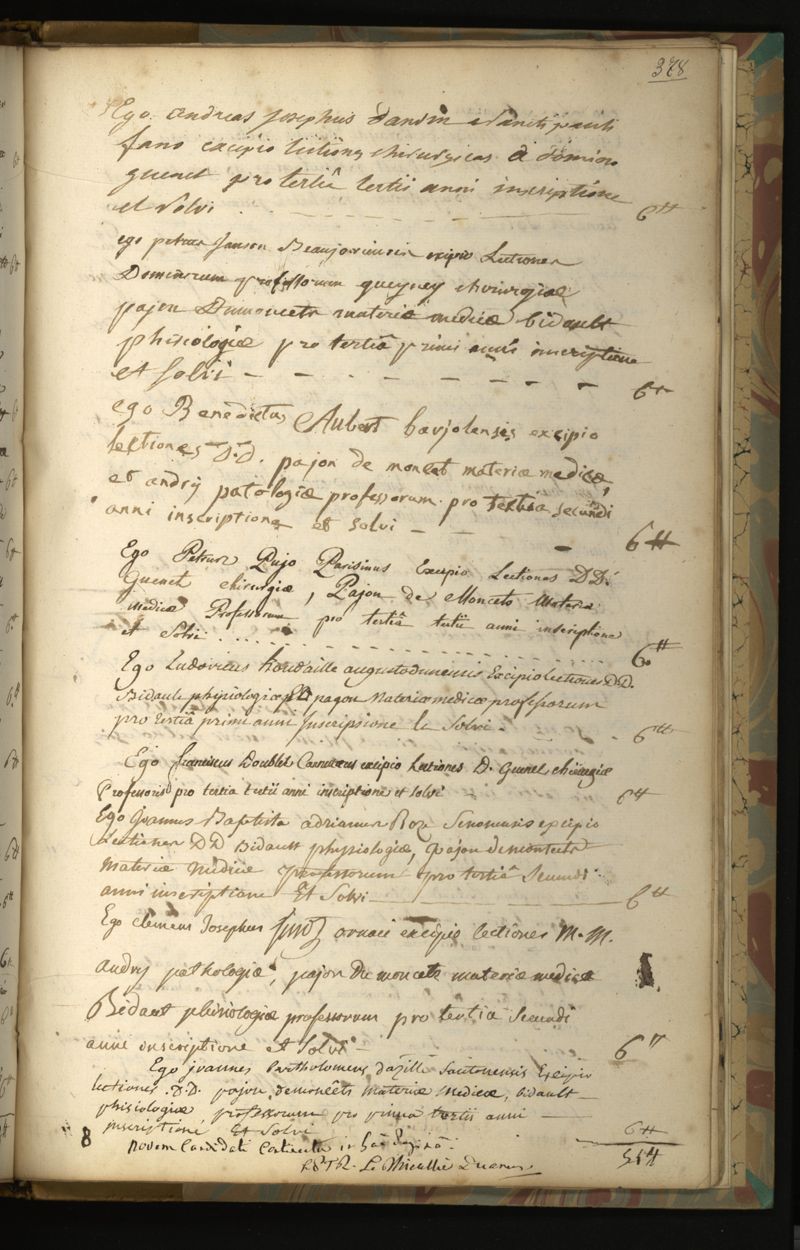 378
Ego andreas josephus dansin Sancti pauli
fano excipio lectiones chirurgicas a domino
guenet pro tertiâ tertii anni inscriptione
et solvi 6tt
ego petrus janson Beaujoviensis excipio Lectiones
Dominorum professorum chirurgiæ
pajon Dumoncets materiæ medicæ bidault
phisiologiæ pro tertiâ primi anni inscriptione
et solvi - - - - - - - 6tt
ego Benedictus Aubert baujolensis excipio
lectiones D.D. pajon de moncet materiæ medicæ,
et andrÿ patologiæ professorum pro tertia secundi
anni inscriptione et solvi - - - 6tt
Ego Petrus Pujo Parisinus Excipio Lectiones D.D.
Guenet chirurgiæ, Pajon de Moncets Materiæ
Medicæ Professorum pro tertiâ tertii anni inscriptione
et Solvi 6tt
Ego Ludovicus houdaille augustodunensis Excipio lectiones D.D.
Bidault physiologiæ pajon Materiæ medicæ professorum
pro tertiâ primi anni Inscripsione Et Solvi. 6tt
Ego franciscus Doublet Carnutæus excipio Lectiones D. Guenet chirurgiæ
Professoris pro tertia tertii anni inscriptione et solvi 6tt
Ego Joannes Baptista adrianus Roze Senonensis excipio
Lectiones DD Bidault physiologiæ, Pajon demoncets
Materiæ Medicæ professorum pro tertiâ Secundi
anni inscriptione Et Solvi 6tt
Ego clemens Josephus excipio lectiones M.M.
andry pathologiæ, pajon de moncets materiæ medicæ
Bidaut phisiologiæ professorum pro tertia Secundi
anni inscriptione et Solvi - 6tt
Ego joannes Bartholomeus dazille Santonensis Excipio
lectiones .D.D. pajon demoncets Materiæ Medicæ, bidault
phisiologiæ professorum pro prima tertii anni
inscriptione Et Solvi 6tt
8 novem Candidati Continentur in hac paginâ. 54tt
Le Thieullier Decanus